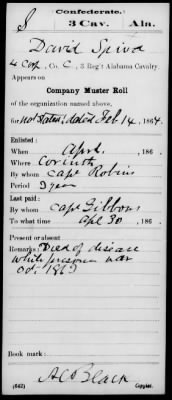 Confederate.
S 3 Cav. Ala.
David Spiva
4 Corp, Co. C, 3 Reg't Alabama Cavalry.
Appears on
Company Muster Roll
of the organization named above,
for not stated, dated Feb 14, 1864.
Enlisted:
When April, 186 .
Where Corinth
By whom Capt Robins
Period 3 year
Last paid:
By whom Capt Gibbons
To what time Apl 30, 186 .
Present or absent
Remarks: Died of disease
while prisoner war
Oct.
Book mark:
(642) Black
Copyist.